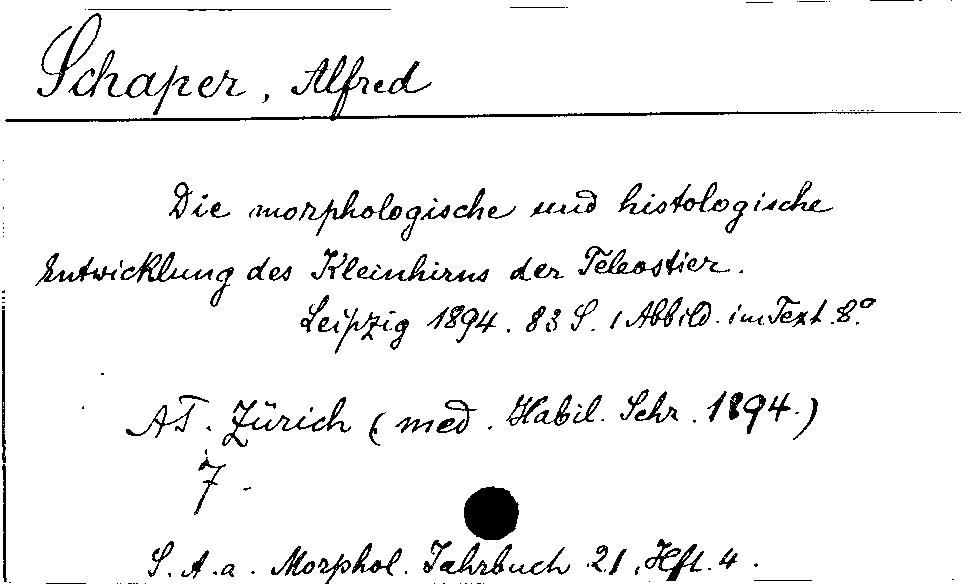 Schaper, Alfred
Die morphologische und histologische
Entwicklung des Kleinhirns der Teleostier.
Leipzig 1894. 83 S. 1 Abbild. im Text. 8.°
AT. Zürich (med. Habil. Schr. 1894.)
7.
S. A. a. Morphol. Jahrbuch 21, Hft. 4.